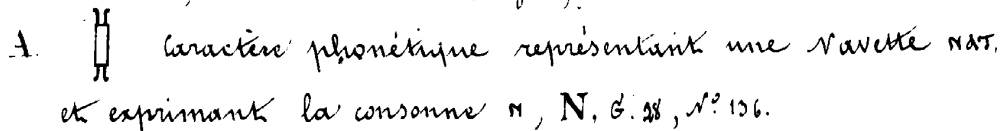 A. 𓋋 Caractère phonétique représentant une Navette ⲛⲁⲧ.
et exprimant la consonne ⲛ, N. G. 28, N° 136.